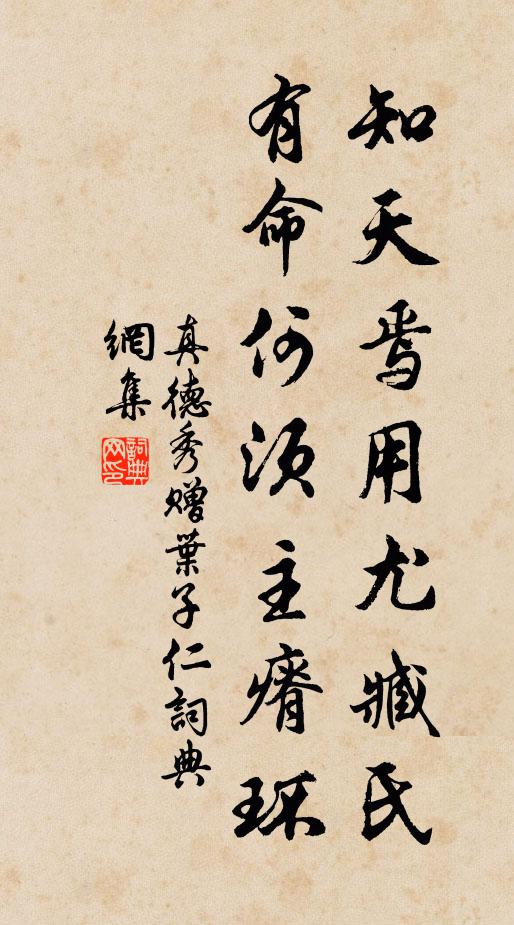 知天焉用尤臧氏
有命何須主瘠環
真德秀贈葉子仁詞典
網集
詞典网印